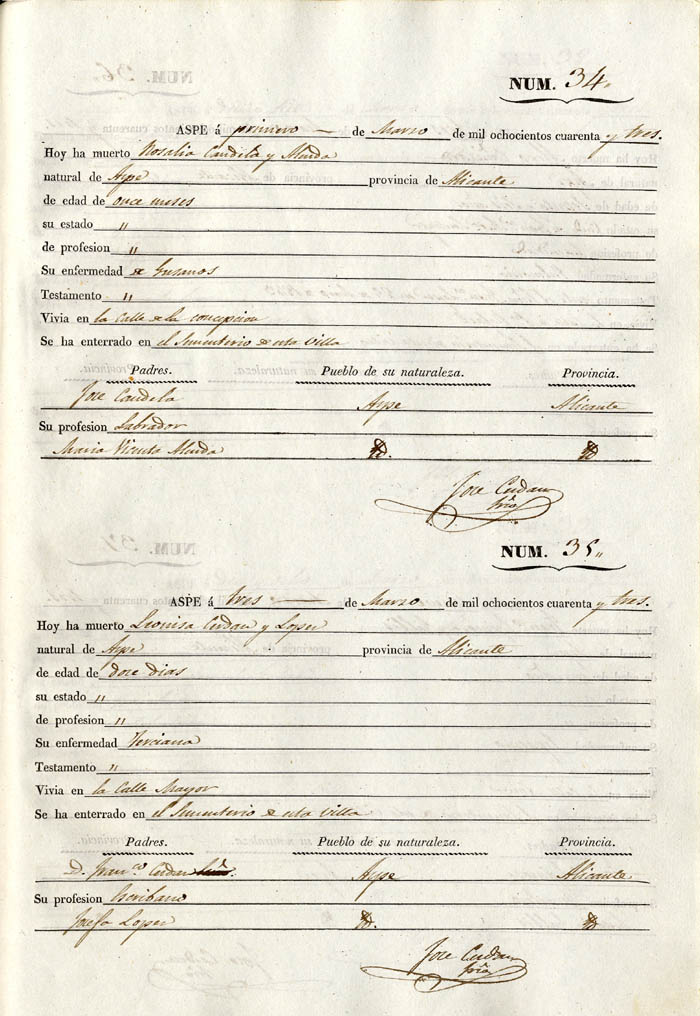 NUM. 34.
ASPE á primero de Marzo de mil ochocientos cuarenta y tres.
Hoy ha muerto Rosalia Candela y
natural de Aspe provincia de Alicante
de edad de once meses
su estado "
de profesion "
Su enfermedad de Gusanos
Testamento "
Vivia en la Calle de la Concepcion
Se ha enterrado en el Sementerio de esta Villa
Padres. Pueblo de su naturaleza. Provincia.
Jose Candela Aspe Alicante
Su profesion Labrador
Maria Vicenta
Jose Cerdan
NUM. 35.
ASPE á tres de Marzo de mil ochocientos cuarenta y tres.
Hoy ha muerto Cerdan y Lopez
natural de Aspe provincia de Alicante
de edad de doce dias
su estado "
de profesion "
Su enfermedad Terciana
Testamento "
Vivia en la Calle Mayor
Se ha enterrado en el Sementerio de esta Villa
Padres. Pueblo de su naturaleza. Provincia.
D. Franco. Cerdan Aspe Alicante
Su profesion Escribano
Josefa Lopez
Jose Cerdan